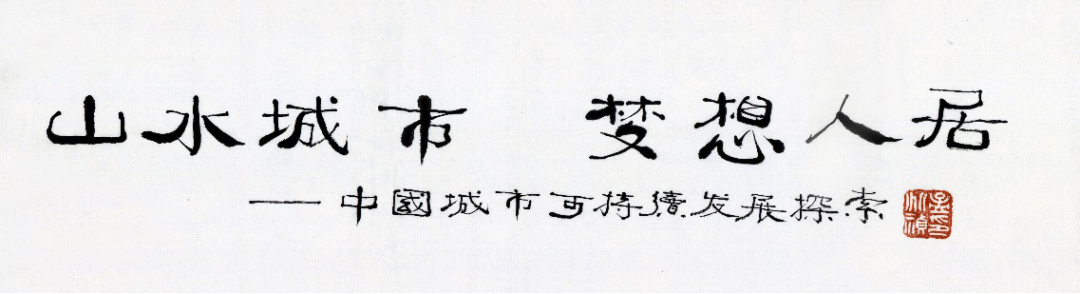 山水城市 梦想人居
——中國城市可持續发展探索